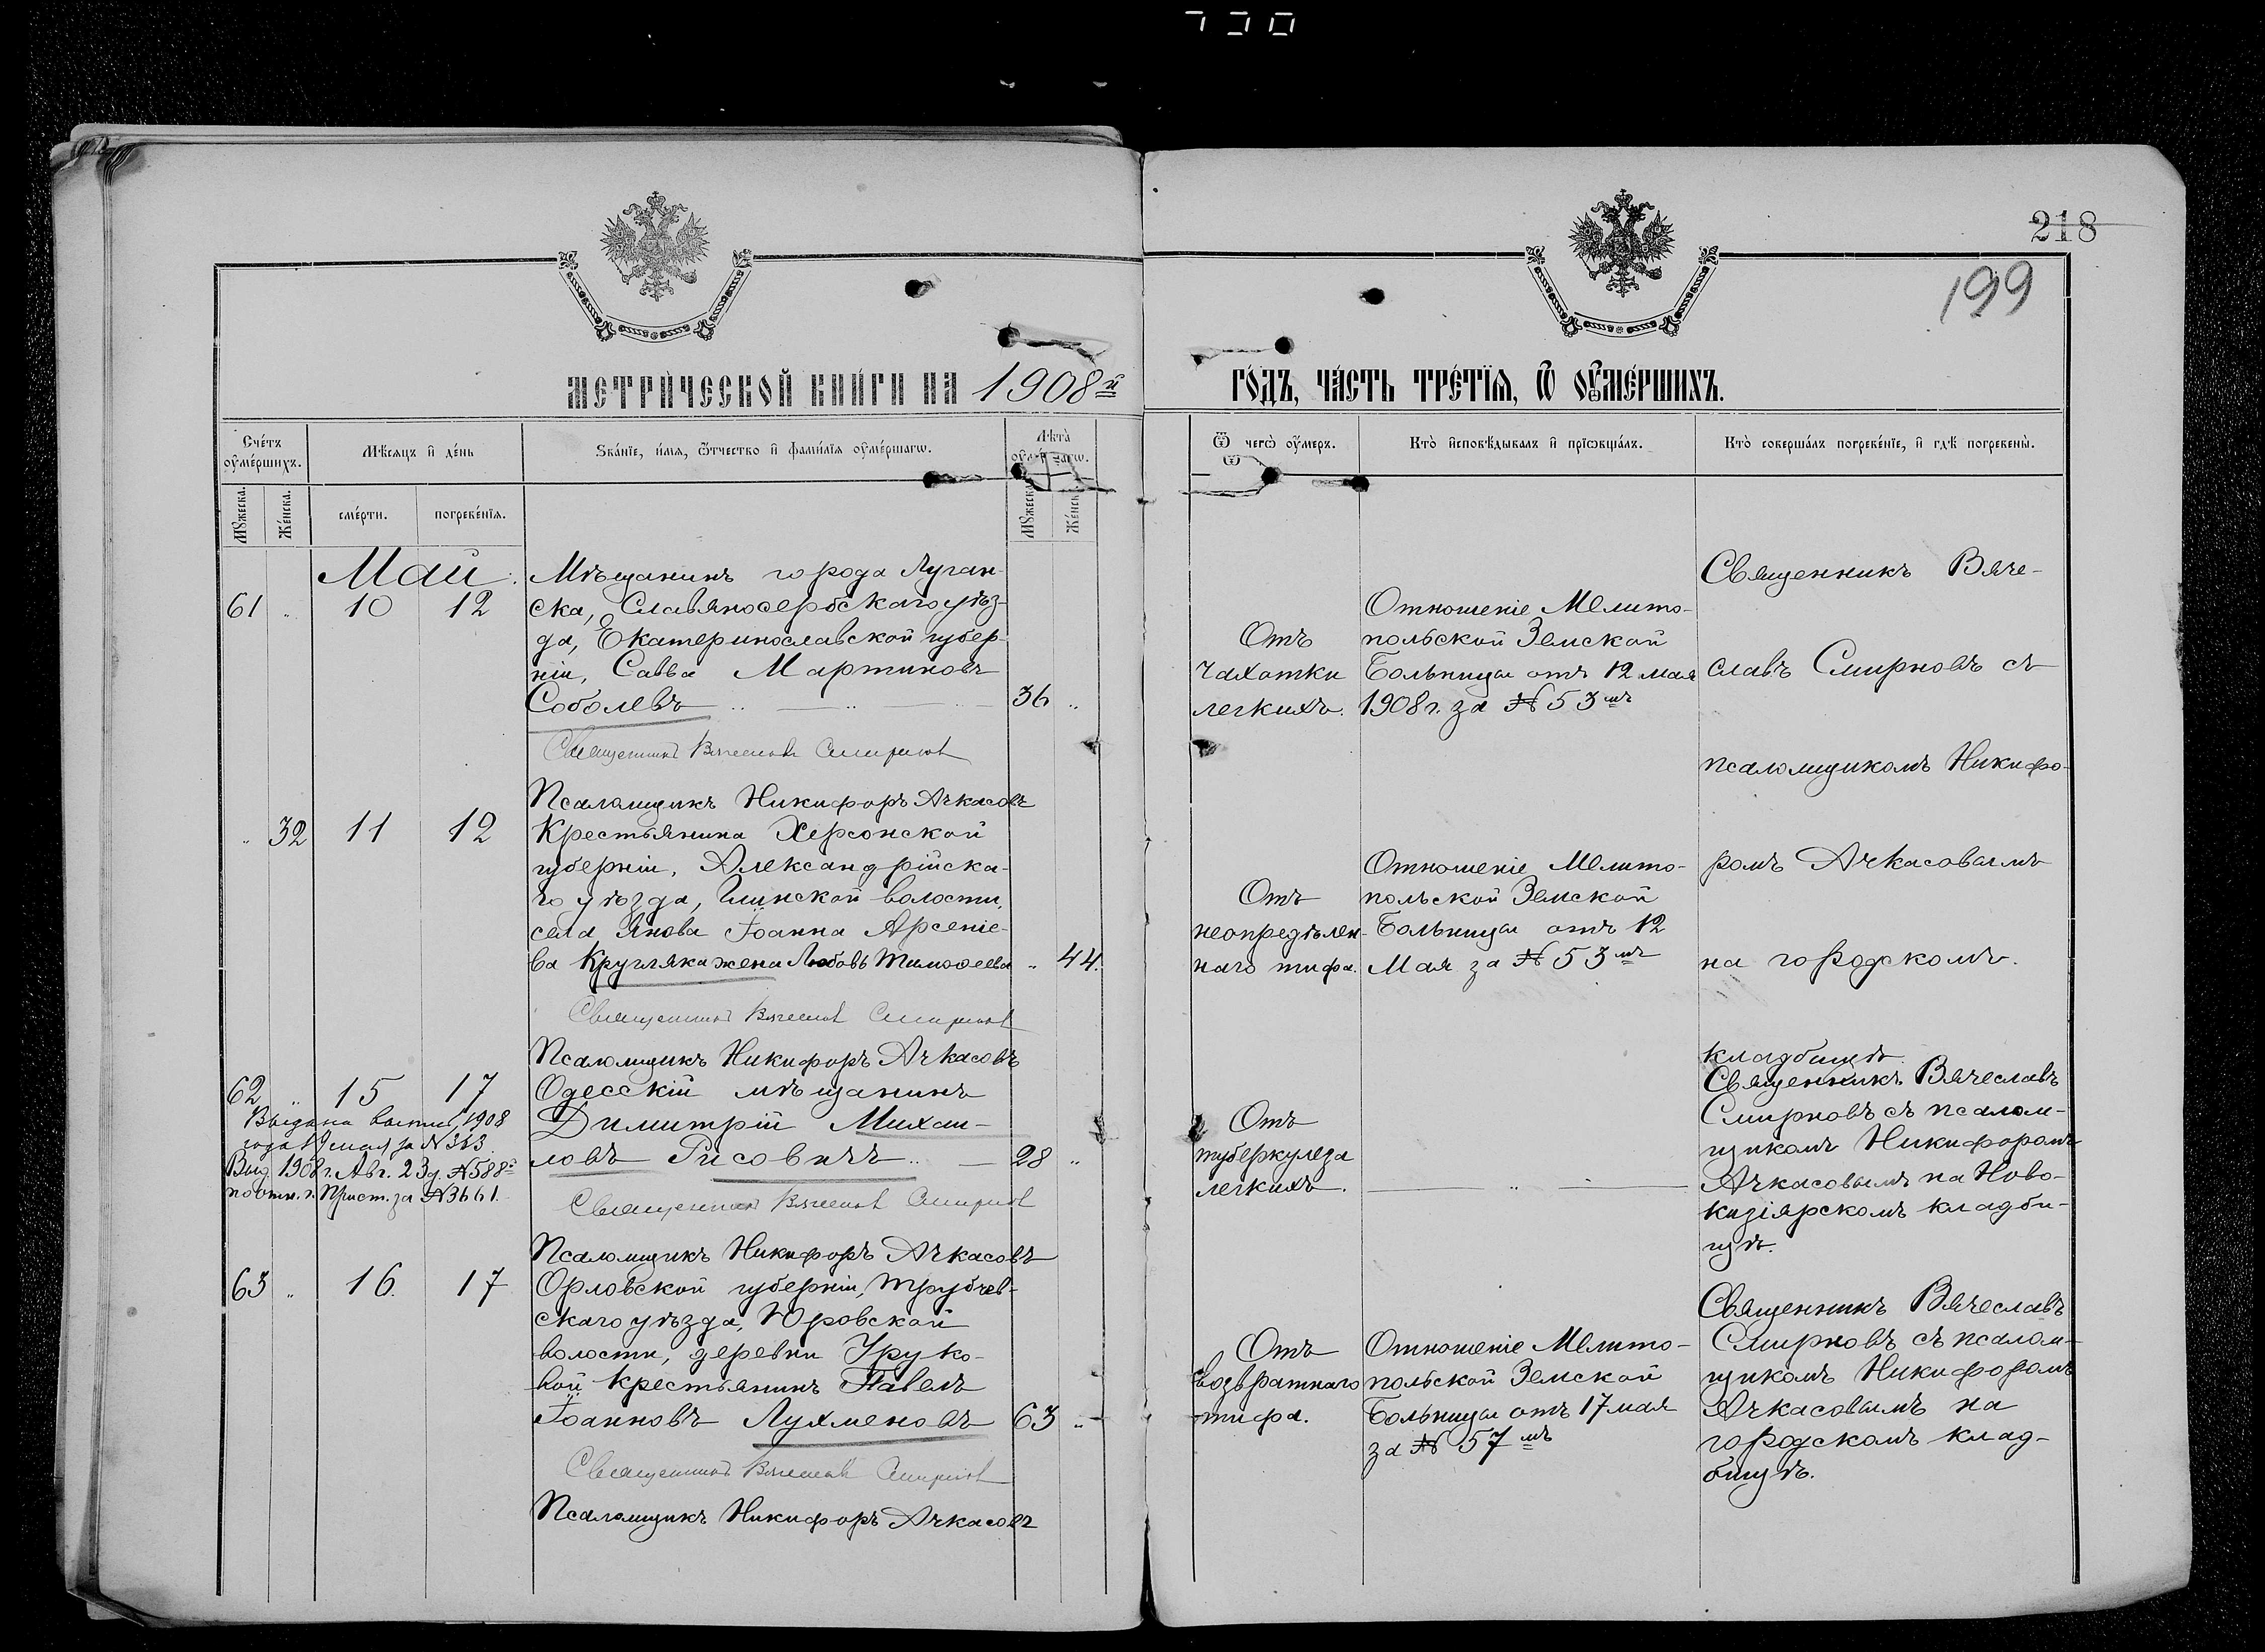 218
199
МЕТРИЧЕСКОЙ КНИГИ НА 1908й
ГОДЪ, ЧАСТЬ ТРЕТІЯ, Ѿ ОУМЕРШИХЪ.
Счетъ оумершихъ.
Мѣсяцъ и день
Званіе, имя, ѿчество и фамилія оумершагѡ.
Лѣта
Мужеска.
Женска.
смерти.
погребенія.
Мужеска
Женск
Ѿ чегѡ оумеръ.
Кто исповѣдывалъ и пріѡбщалъ.
Кто совершалъ погребеніе, и гдѣ погребены.
Май.
61 " 10 12
Мѣщанинъ города Луган-
ска, Славяносербскаго уѣз-
да, Екатеринославской губер-
ніи, Савва Мартиновъ
Соболевъ 36 "
Священникъ Вячеславъ Смирновъ
Псаломщикъ Никифоръ Ачкасовъ
Отъ
чахотки
легкихъ.
Отношеніе Мелито-
польской Земской
Больницы отъ 12 мая
1908 г. за № 53мъ
Священникъ Вяче-
славъ Смирновъ съ
псаломщикомъ Никифо-
ромъ Ачкасовымъ
на городскомъ
кладбищѣ.
" 32 11 12
Крестьянина Херсонской
губерніи, Александрійска-
го уѣзда, Глинской волости,
села Янова Іоанна Арсеніе-
ва Кругляка жена Любовь Тимоѳеева " 44.
Священникъ Вячеславъ Смирновъ
Псаломщикъ Никифоръ Ачкасовъ
Отъ
неопредѣлен-
наго тифа.
Отношеніе Мелито-
польской Земской
Больницы отъ 12
Мая за № 53мъ
62 " 15 17
Выдана выпись, 1908
года 19 мая за № 323.
Выд. 1908 г. Авг. 23 д. № 588й
по отн. г. Прист. за № 3661.
Одесскій мѣщанинъ
Димитрій Михаи-
ловъ Рисовичъ 28 "
Священникъ Вячеславъ Смирновъ
Псаломщикъ Никифоръ Ачкасовъ
Отъ
туберкулеза
легкихъ.
Священникъ Вячеславъ
Смирновъ съ псалом-
щикомъ Никифоромъ
Ачкасовымъ на Ново-
кизіярскомъ кладби-
щѣ.
63 " 16. 17
Орловской губерніи, Трубчев-
скаго уѣзда, Юровской
волости, деревни Уруко-
вой крестьянинъ Павелъ
Іоанновъ Лухменовъ 63 "
Священникъ Вячеславъ Смирновъ
Псаломщикъ Никифоръ Ачкасовъ
Отъ
возвратнаго
тифа.
Отношеніе Мелито-
польской Земской
Больницы отъ 17 мая
за № 57мъ
Священникъ Вячеславъ
Смирновъ съ псалом-
щикомъ Никифоромъ
Ачкасовымъ на
городскомъ клад-
бищѣ.